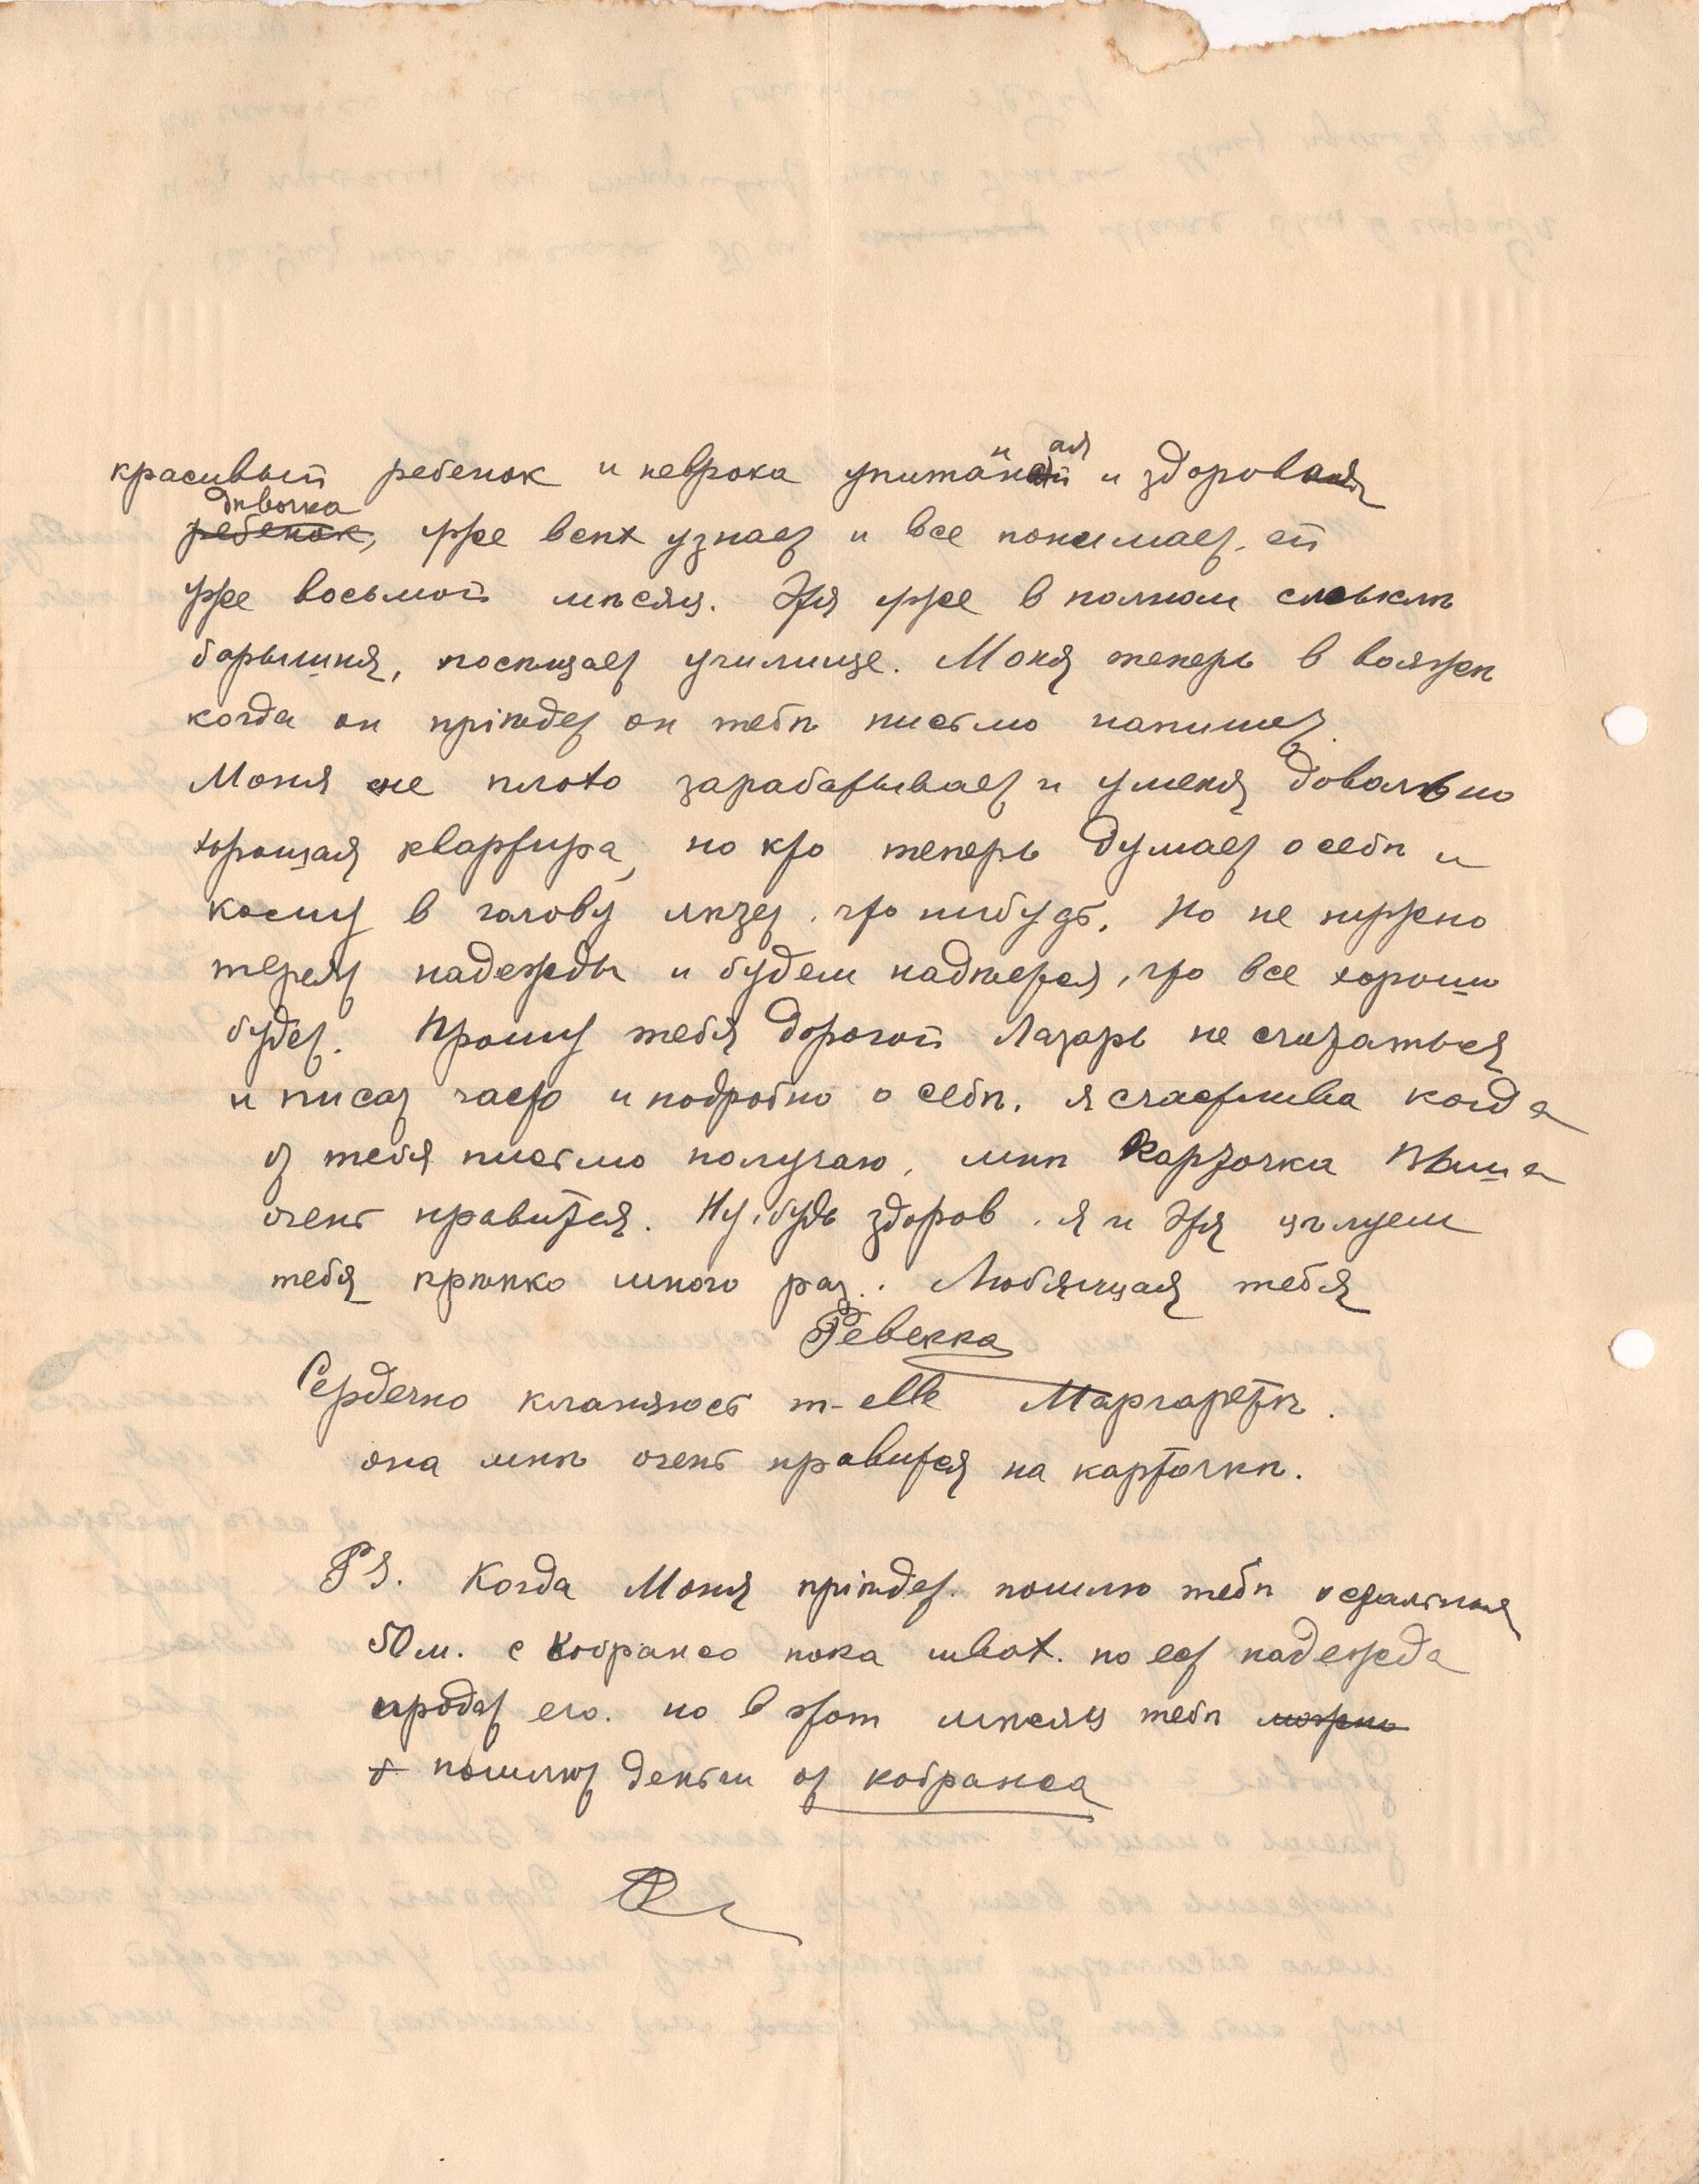 красивый ребенок и неврока упитанная и здоровая
дѣвочка
ребенок, уже всѣх узнает и все понимает, ей
уже восьмой мѣсяц. Этя уже в полном смыслѣ
барышня, посѣщает училище. Моня теперь в вояжѣ
когда он пріѣдет он тебѣ письмо напишет.
Моня не плохо зарабатывает и у меня довольно
хорошая квартира, но кто теперь думает о себѣ и
кому в голову лѣзет что нибудь. Но не нужно
терять надежды и будем надѣется, что все хорошо
будет. Прошу тебя дорогой Лазарь не считаться
и писат часто и подробно о себѣ. я счастлива когда
от тебя письмо получаю, мнѣ карточка Ваша
очень нравится. Ну, будь здоров. я и Этя цѣлуем
тебя крѣпко много раз.. Любящая тебя
Ревекка
Сердечно кланяюсь m-elle Маргаретѣ.
она мнѣ очень нравится на карточкѣ.
PS. Когда Моня пріѣдет. пошлю тебѣ остальныя
50 м. с Кобрансо пока но ест надежда
продат его. но в этот мѣсяц тебѣ можно
пошлют деньги от кобранса